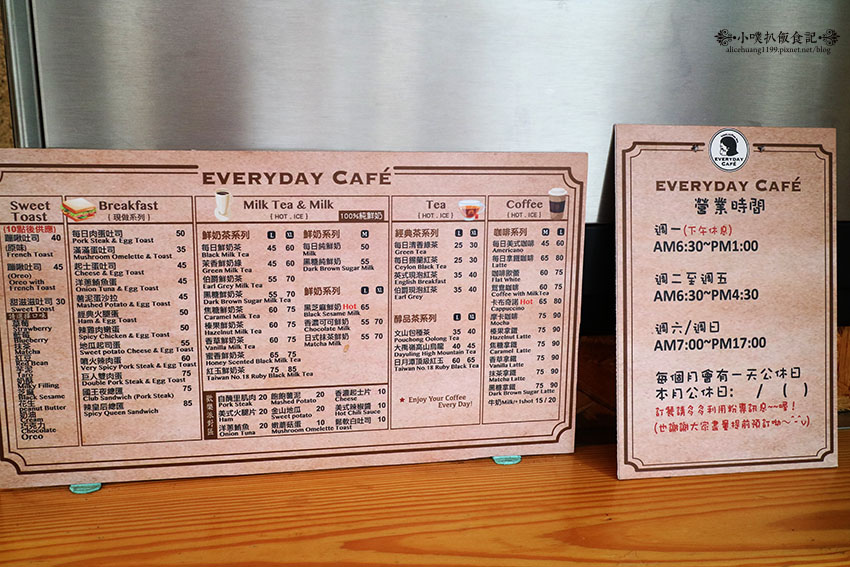 小噗扒飯食記
alicehuang1199.pixnet.net/blog
EVERYDAY CAFÉ
Sweet Toast
(10點後供應)
蹦啾吐司 40
(原味)
French Toast
蹦啾吐司 45
(Oreo)
Oreo with
French Toast
甜滋滋吐司 30
Sweet Toast
草莓
Strawberry
藍莓
Blueberry
抹茶
Matcha
紅豆
Red Bean
芋泥
Taro
奶酥
Milky Filling
花生
Peanut Butter
奶油
Cream
巧克力
Chocolate
Oreo
Breakfast
(現做系列)
每日肉蛋吐司 50
Pork Steak & Egg Toast
滿滿蛋吐司 35
Mushroom Omelette & Toast
起士蛋吐司 35
Cheese & Egg Toast
洋蔥鮪魚蛋 50
Onion Tuna & Egg Toast
薯泥蛋沙拉 45
Mashed Potato & Egg Toast
經典火腿蛋 40
Ham & Egg Toast
辣雞肉嫩蛋 50
Spicy Chicken & Egg Toast
地瓜起司蛋 55
Sweet potato Cheese & Egg Toast
噴火辣肉蛋 60
Very Spicy Pork Steak & Egg Toast
巨人雙肉蛋 75
Double Pork Steak & Egg Toast
國王夜總匯 80
Club Sandwich (Pork Steak)
辣皇后總匯 85
Spicy Queen Sandwich
Milk Tea & Milk
{ HOT . ICE }
100%純鮮奶
鮮奶茶系列 L M
每日鮮奶茶 45 60
Black Milk Tea
茉香鮮奶綠 45 60
Green Milk Tea
伯爵鮮奶茶 55 70
Earl Grey Milk Tea
黑糖鮮奶茶 55 70
Dark Brown Sugar Milk Tea
焦糖鮮奶茶 60 75
Caramel Milk Tea
榛果鮮奶茶 60 75
Hazelnut Milk Tea
香草鮮奶茶 60 75
Vanilla Milk Tea
蜜香鮮奶茶 65 75
Honey Scented Black Milk Tea
紅玉鮮奶茶 70 85
Taiwan No.18 Ruby Black Milk Tea
鮮奶系列 M
每日純鮮奶 50
Milk
黑糖純鮮奶 55
Dark Brown Sugar Milk
鮮奶系列 L M
黑芝麻鮮奶 Hot 65
Black Sesame Milk
香濃可可鮮奶 55 70
Chocolate Milk
日式抹茶鮮奶 55 70
Matcha Milk
歡樂來對話
自醃里肌肉 20
Pork Steak
美式火腿片 20
Ham
洋蔥鮪魚 20
Onion Tuna
飽飽薯泥 20
Mashed Potato
金山地瓜 20
Sweet potato
嫩蘑菇蛋 10
Mushroom Omelette Toast
香濃起士片 10
Cheese
美式辣椒醬 10
Hot Chili Sauce
鬆軟白吐司 10
Toast
Tea
{ HOT . ICE }
經典茶系列 L M
每日清香綠茶 25 30
Green Tea
每日錫蘭紅茶 25 30
Ceylon Black Tea
英式現泡紅茶 35 40
English Breakfast
伯爵現泡紅茶 35 40
Earl Grey
醇品茶系列 L M
文山包種茶 35 40
Pouchong Oolong Tea
大禹嶺高山烏龍 40 45
Dayuling High Mountain Tea
日月潭頂級紅玉 50 60
Taiwan No.18 Ruby Black Tea
★ Enjoy Your Coffee
Every Day!
Coffee
{ HOT . ICE }
咖啡系列 L M
每日美式咖啡 45 60
Americano
每日拿鐵咖啡 65 80
Latte
咖啡歐蕾 60 75
Flat White
鴛鴦咖啡 60 75
Coffee with MilkTea
卡布奇諾 Hot 65 80
Cappuccino
摩卡咖啡 75 90
Mocha
榛果拿鐵 75 90
Hazelnut Latte
焦糖拿鐵 75 90
Caramel Latte
香草拿鐵 75 90
Vanilla Latte
抹茶拿鐵 75 90
Matcha Latte
黑糖拿鐵 75 90
Dark Brown Sugar Latte
牛奶Milk/1shot 15 / 20
EVERYDAY CAFÉ
EVERYDAY CAFÉ
營業時間
週一(下午休息)
AM6:30~PM1:00
週二至週五
AM6:30~PM4:30
週六/週日
AM7:00~PM17:00
每個月會有一天公休日
本月公休日: / ( )
訂餐請多多利用粉專訊息~~喔!
(也謝謝大家盡量提前預訂呦~ˇ υ)